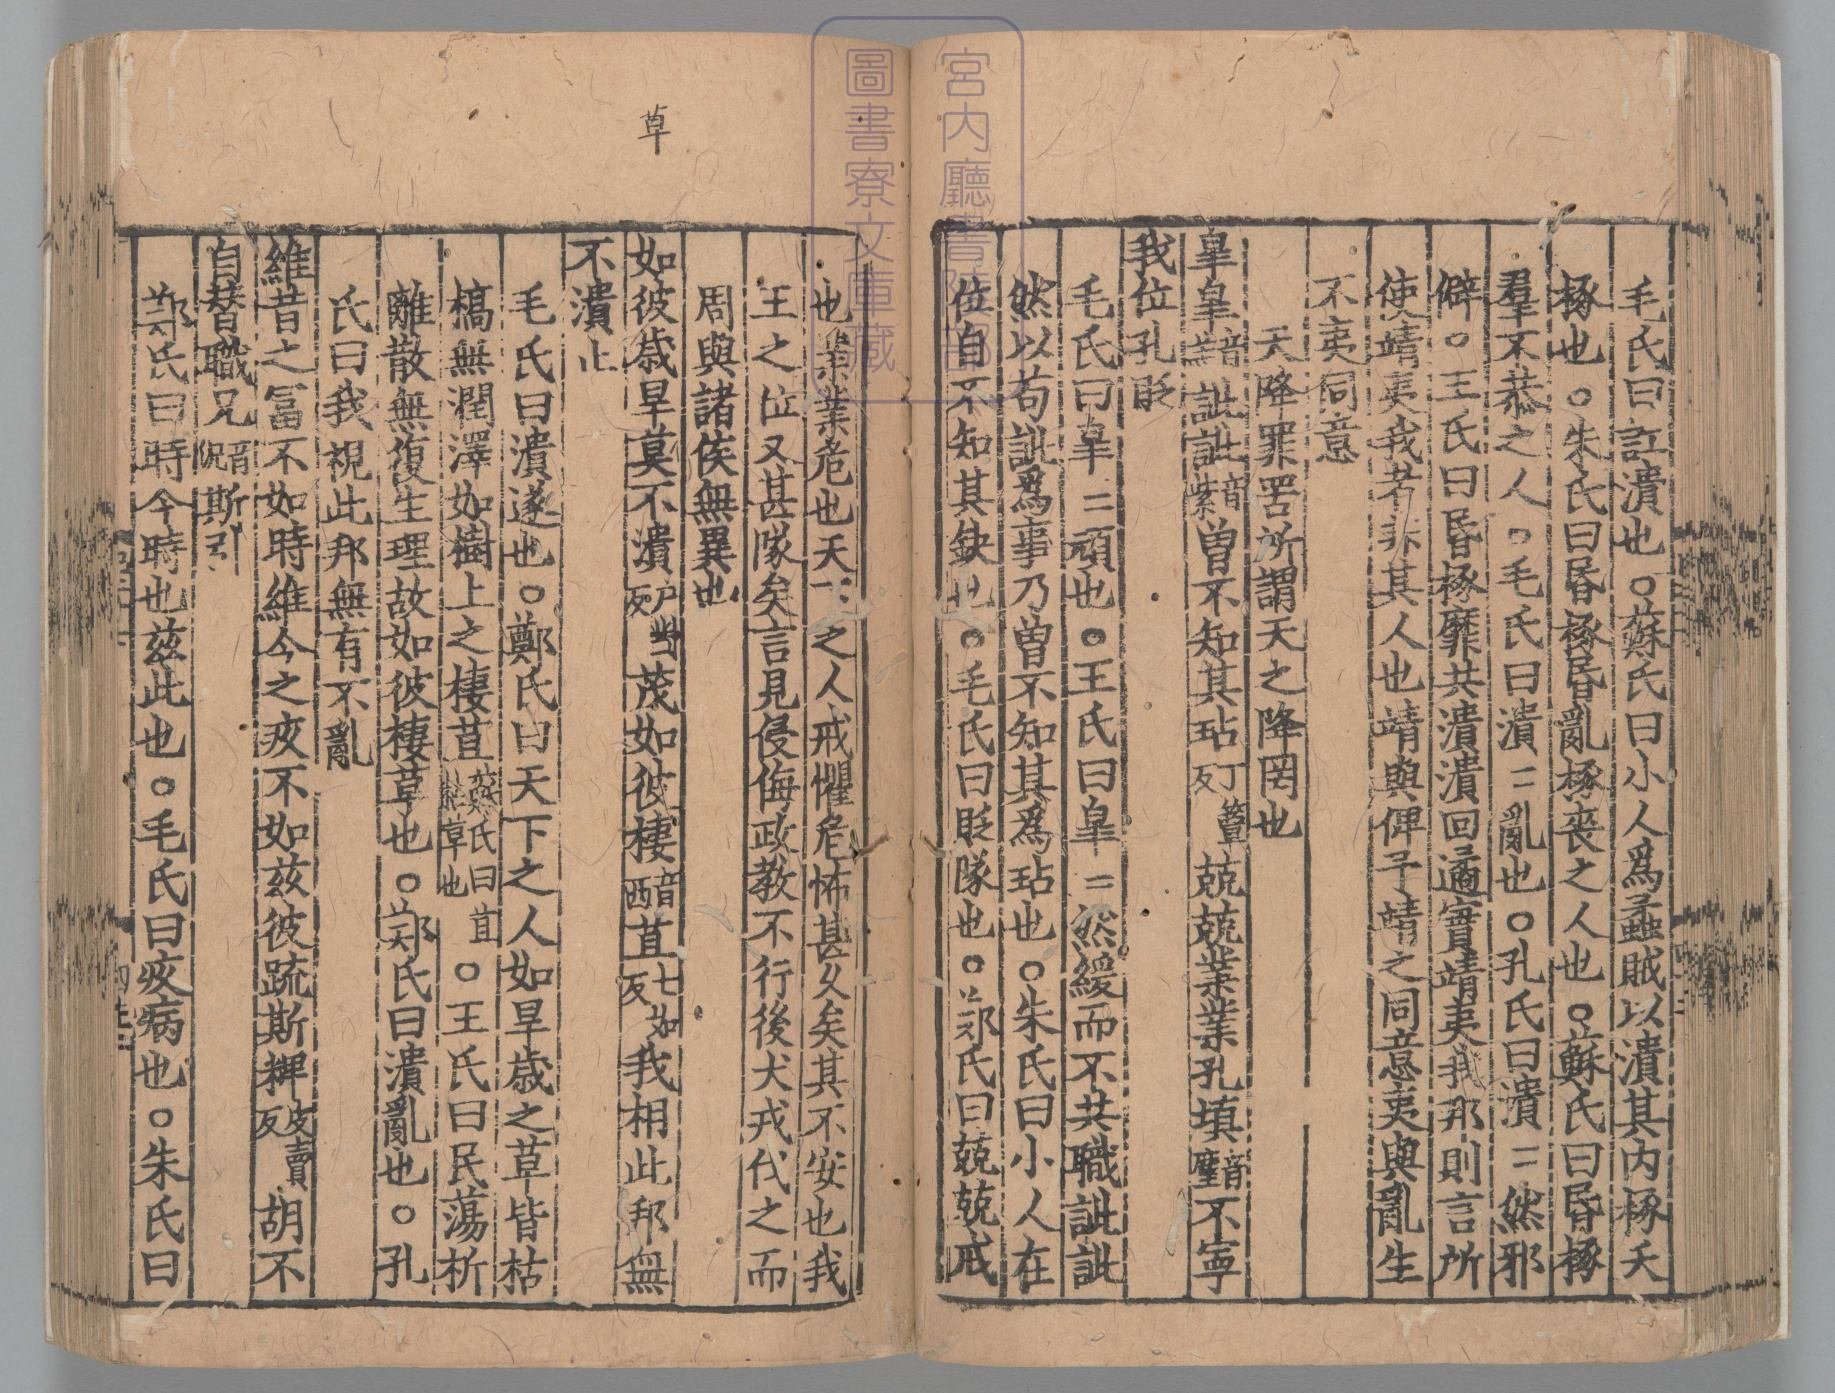 毛氏曰訌潰也○蘇氏曰小人爲蟊賊以潰其内椓夭
椓也○朱氏曰昏椓昏亂椓喪之人也○蘇氏曰昏椓
羣不恭之人○毛氏曰潰〻亂也○孔氏曰潰〻然邪
僻○王氏曰昏椓靡共潰潰回遹實靖夷我邦則言所
使靖夷我者非其人也靖與俾予靖之同意夷與亂生
不夷同意
天降罪罟所謂天之降罔也
皐皐音羔訿訿音紫曽不知其玷丁簟反兢兢業業孔填音塵不寧
我位孔貶
毛氏曰皐〻頑也○王氏曰皐〻然緩而不共職訿訿
然以苟訿爲事乃曽不知其爲玷也○朱氏曰小人在
位自不知其缺也○毛氏曰貶隊也○郑氏曰兢兢戒
也業業危也天下之人戒懼危怖甚久矣其不安也我
王之位又甚隊矣言見侵侮政教不行後犬戎伐之而
周與諸侯無異也
如彼歳旱莫不潰户對反茂如彼棲音西苴七如反我相此邦無
不潰止
毛氏曰潰遂也○鄭氏曰天下之人如旱歳之草皆枯
槁無潤澤如樹上之棲苴蘇氏曰苴枯草也○王氏曰民蕩析
離散無復生理故如彼棲草也○郑氏曰潰亂也○孔
氏曰我視此邦無有不亂
維昔之冨不如時維今之疚不如兹彼疏斯粺皮賣反胡不
自替職兄音況斯引
郑氏曰時今時也兹此也○毛氏曰疚病也○朱氏曰
草
宮内廳書陵部
圖書寮文庫藏